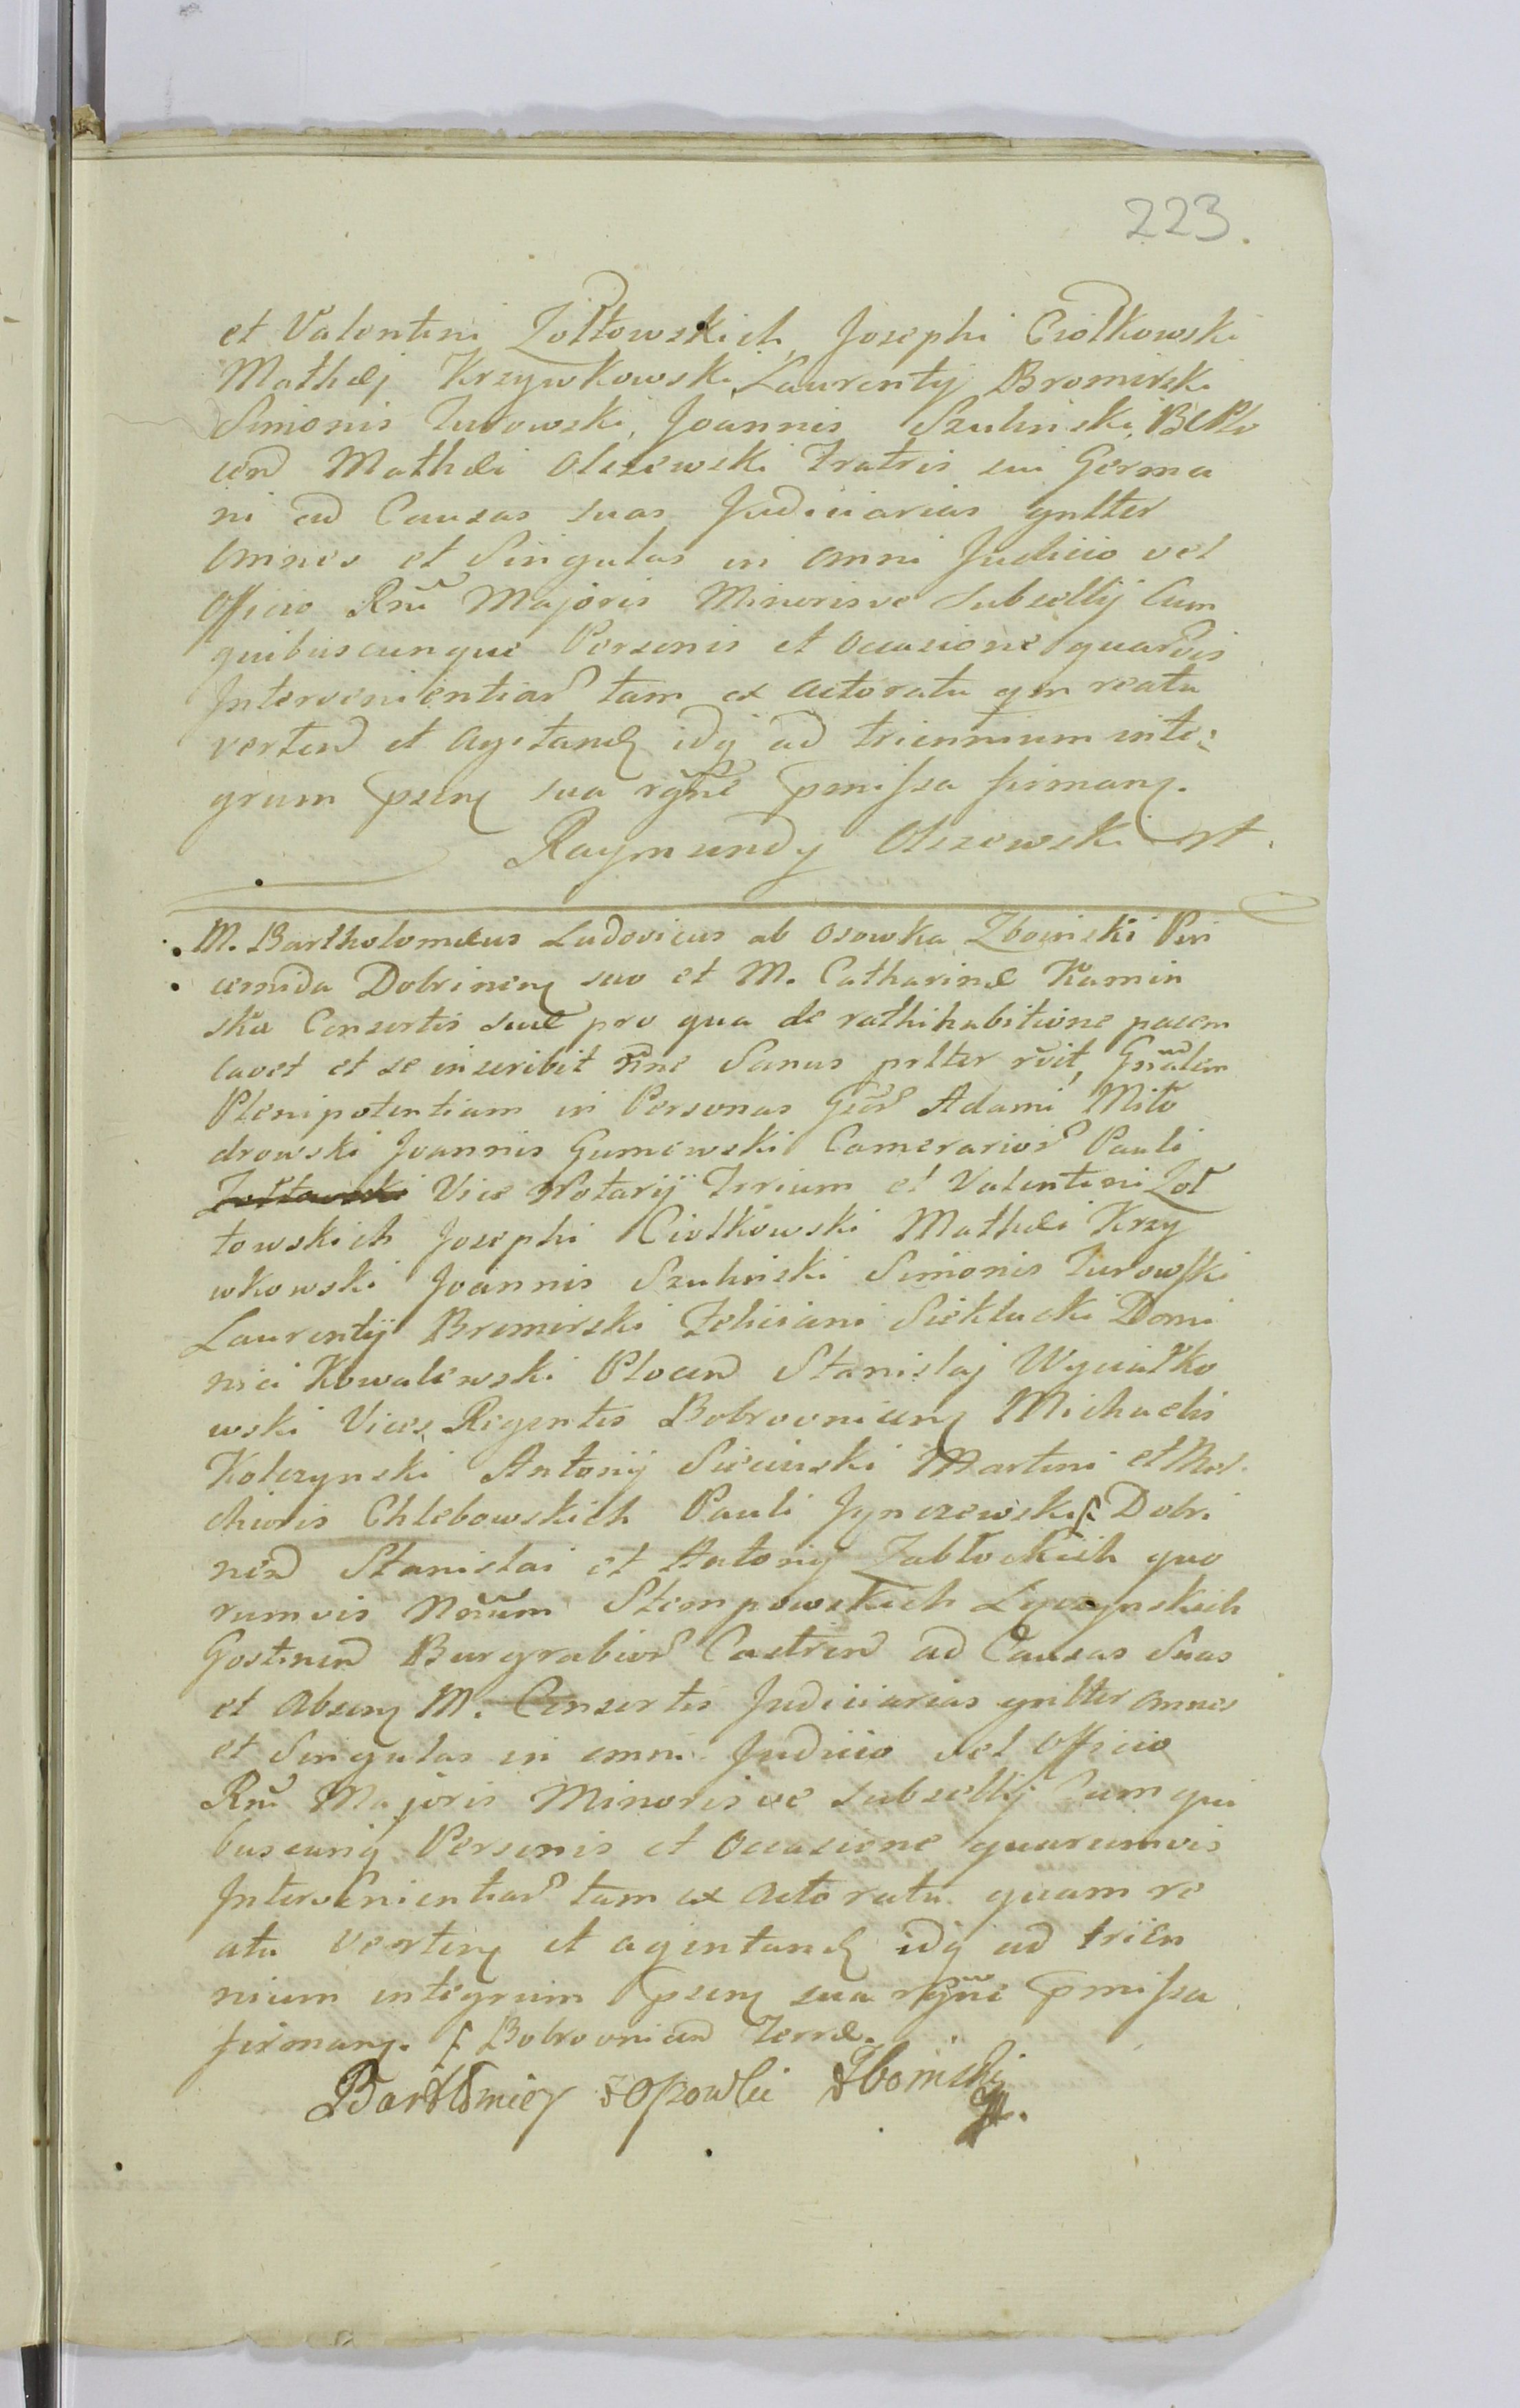 223.
et Valentini Żołtowskich, Josephi Ciołkowski
Mathej Krzywkowski, Laurentij Bromirski
Simonis Turowski, Joannis Szuliński, BC Plo
cen Mathæi Olszewski Fratris sui Germa
ni ad Causas suas Judiciarias gnlter
omnes et Singulas in omni Judicio vel
Officio Rni Majoris Minorisve Subsellij Cum
quibuscunque Personis et Occasione quarvis
Intervenientiar tam ex actoratu qm reatu
verten et agitand idq ad triennium inte:
grum psens sua rgne pmissa firmans.
Raymundy Olszewski
M. Bartholomæus Ludovicus ab Osowka Zboinski Pin
cernida Dobrinens suo et M. Catharinæ Kamin
ska Consortis suæ pro qua de rathihabitione pacem
cavet et se inscribit nne Sanus prlter rcit, Gnalem
Plenipotentiam in Personas Gsor Adami Milo
drowski Joannis Gumowski Camerarior Pauli
Żołtowski Vice Notarij Trium et Valentini Żoł
towskich Josephi Ciołkowski Mathæi Krzy
wkowski Joannis Szuliński Simonis Turowski
Laurentij Bromirski Feliciani Siekłucki Domi
nici Kowalewski Plocen Stanislaj Wyciałko
wski Vices Regentis Bobrovnicens Michaelis
Kolczynski Antonij Sieciński Martini et Mel
chioris Chlebowskich Pauli Jynczewski Dobri
nen Stanislai et Antonij Zabłockich quo
rumvis Noium Stempowskich Lyczynskich
Gostinen Burgrabior Castren ad Causas Suas
et Absens M. Consortis Judiciarias gnlter omnes
et Singulas in omni Judicio vel Officio
Rni Majoris Minorisve subsellij Cum qui
buscunq Personis et Occasione quarumvis
Intervenientiar tam ex Actoratu quam re
atu vertens et agintand idq ad trien
nium integrum psens sua rgne pmissa
firmans. Bobrovnicen Terræ.
Bartłomiey z Osowki Zboiński